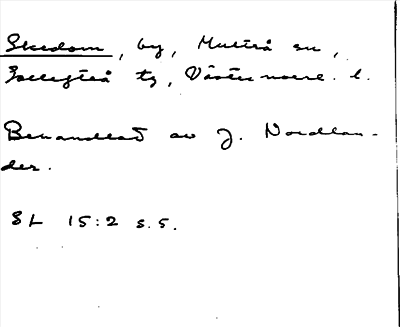 Skedom, by, Multrå sn,
Sollefteå tg, Västernorrl. l.
Behandlat av J. Nordlan-
der.
SL 15:2 s. 5.